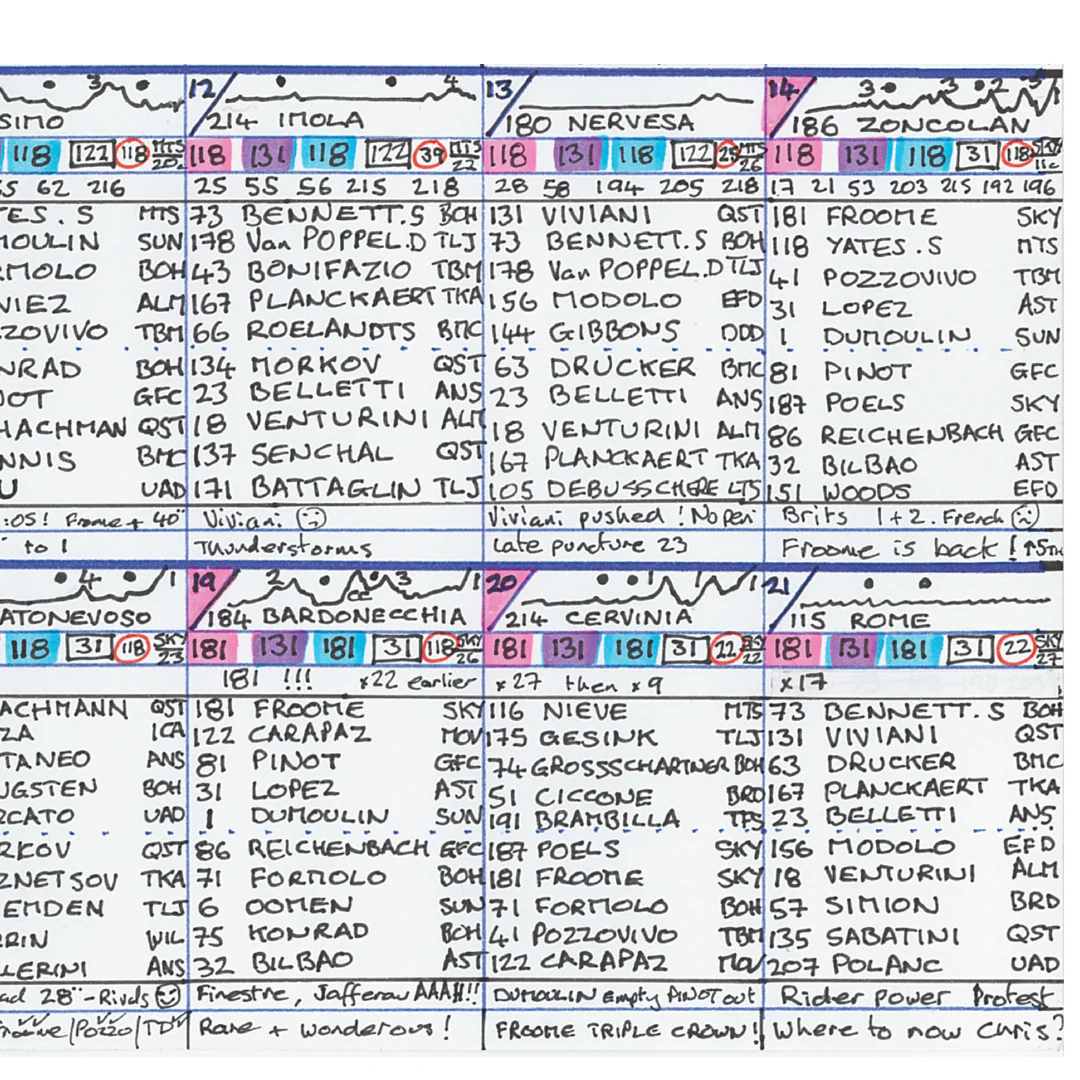 3
SIMO
118 122 118 MTS 20
5 62 216
TES.S MTS
MOULIN SUN
RMOLO BOH
NIEZ ALM
ZZOVIVO TBM
NRAD BOH
NOT GFC
HACHMAN QST
NNIS BMC
U UAD
:05! Froome + 40"
to 1
12 4
214 IMOLA
118 131 118 122 39 MTS 22
25 55 56 215 218
73 BENNETT.S BOH
178 Van POPPEL.D TLJ
43 BONIFAZIO TBM
167 PLANCKAERT TKA
66 ROELANDTS BMC
134 MORKOV QST
23 BELLETTI ANS
18 VENTURINI ALM
137 SENCHAL QST
171 BATTAGLIN TLJ
Viviani
Thunderstorms
13
180 NERVESA
118 131 118 122 MTS 26
28 58 194 205 218
131 VIVIANI QST
73 BENNETT.S BOH
178 Van POPPEL.D TLJ
156 MODOLO EFD
144 GIBBONS DDD
63 DRUCKER BMC
23 BELLETTI ANS
18 VENTURINI ALM
167 PLANCKAERT TKA
105 DEBUSSCHERE LTS
Viviani pushed! No pen
Late puncture 23
14 3 3 2 3 1
186 ZONCOLAN
118 131 118 31 118 SKY
17 21 53 203 215 192 196
181 FROOME SKY
118 YATES.S MTS
41 POZZOVIVO TBM
31 LOPEZ AST
1 DUMOULIN SUN
81 PINOT GFC
187 POELS SKY
86 REICHENBACH GFC
32 BILBAO AST
151 WOODS EFD
Brits 1+2. French
Froome is back! ↑5TH
4 1
ATONEVOSO
118 31 118 SKY 23
ACHMANN QST
ZA ICA
TANEO ANS
UGSTEN BOH
RCATO UAD
RKOV QST
ZNETSOV TKA
EMDEN TLJ
RRIN WIL
LERINI ANS
ad 28"-Rivals
Froome/Pozzo/TD
19 2 CC 3 1
184 BARDONECCHIA
181 131 181 31 118 SKY 26
181 !!! x22 earlier
181 FROOME SKY
122 CARAPAZ MOV
81 PINOT GFC
31 LOPEZ AST
1 DUMOULIN SUN
86 REICHENBACH GFC
71 FORMOLO BOH
6 OOMEN SUN
75 KONRAD BOH
32 BILBAO AST
Finestre, Jafferau AAAH!!
Rare + wonderous!
20 1 1 1
214 CERVINIA
181 131 181 31 22 22
x27 then x9
116 NIEVE MTS
175 GESINK TLJ
74 GROSSSCHARTNER BOH
51 CICCONE BRD
191 BRAMBILLA TFS
187 POELS SKY
181 FROOME SKY
71 FORMOLO BOH
41 POZZOVIVO TBM
122 CARAPAZ MOV
DUMOULIN Empty PINOT out
FROOME TRIPLE CROWN!
21
115 ROME
181 131 181 31 22 SKY 27
x17
73 BENNETT.S BOH
131 VIVIANI QST
63 DRUCKER BMC
167 PLANCKAERT TKA
23 BELLETTI ANS
156 MODOLO EFD
18 VENTURINI ALM
57 SIMION BRD
135 SABATINI QST
207 POLANC UAD
Rider power Protest
Where to now Chris?